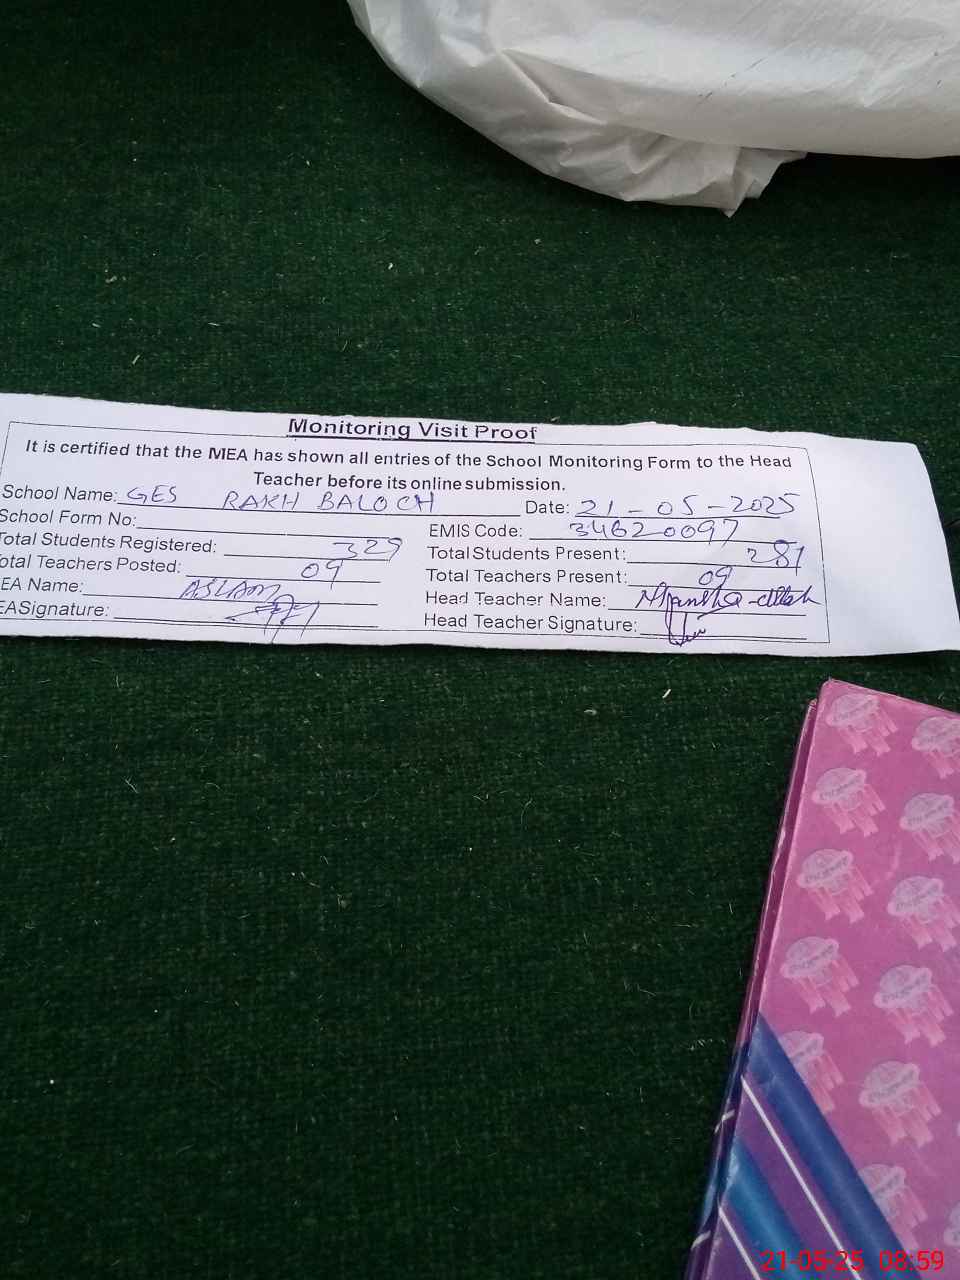 Monitoring Visit Proof
It is certified that the MEA has shown all entries of the School Monitoring Form to the Head
Teacher before its online submission.
School Name: GES RAKH BALOCH Date: 21-05-2025
School Form No: EMIS Code: 34620097
Total Students Registered: 329 Total Students Present: 281
otal Teachers Posted: 09 Total Teachers Present: 09
EA Name: ASLAM Head Teacher Name:
EASignature: Head Teacher Signature:
21-05-25 08:59